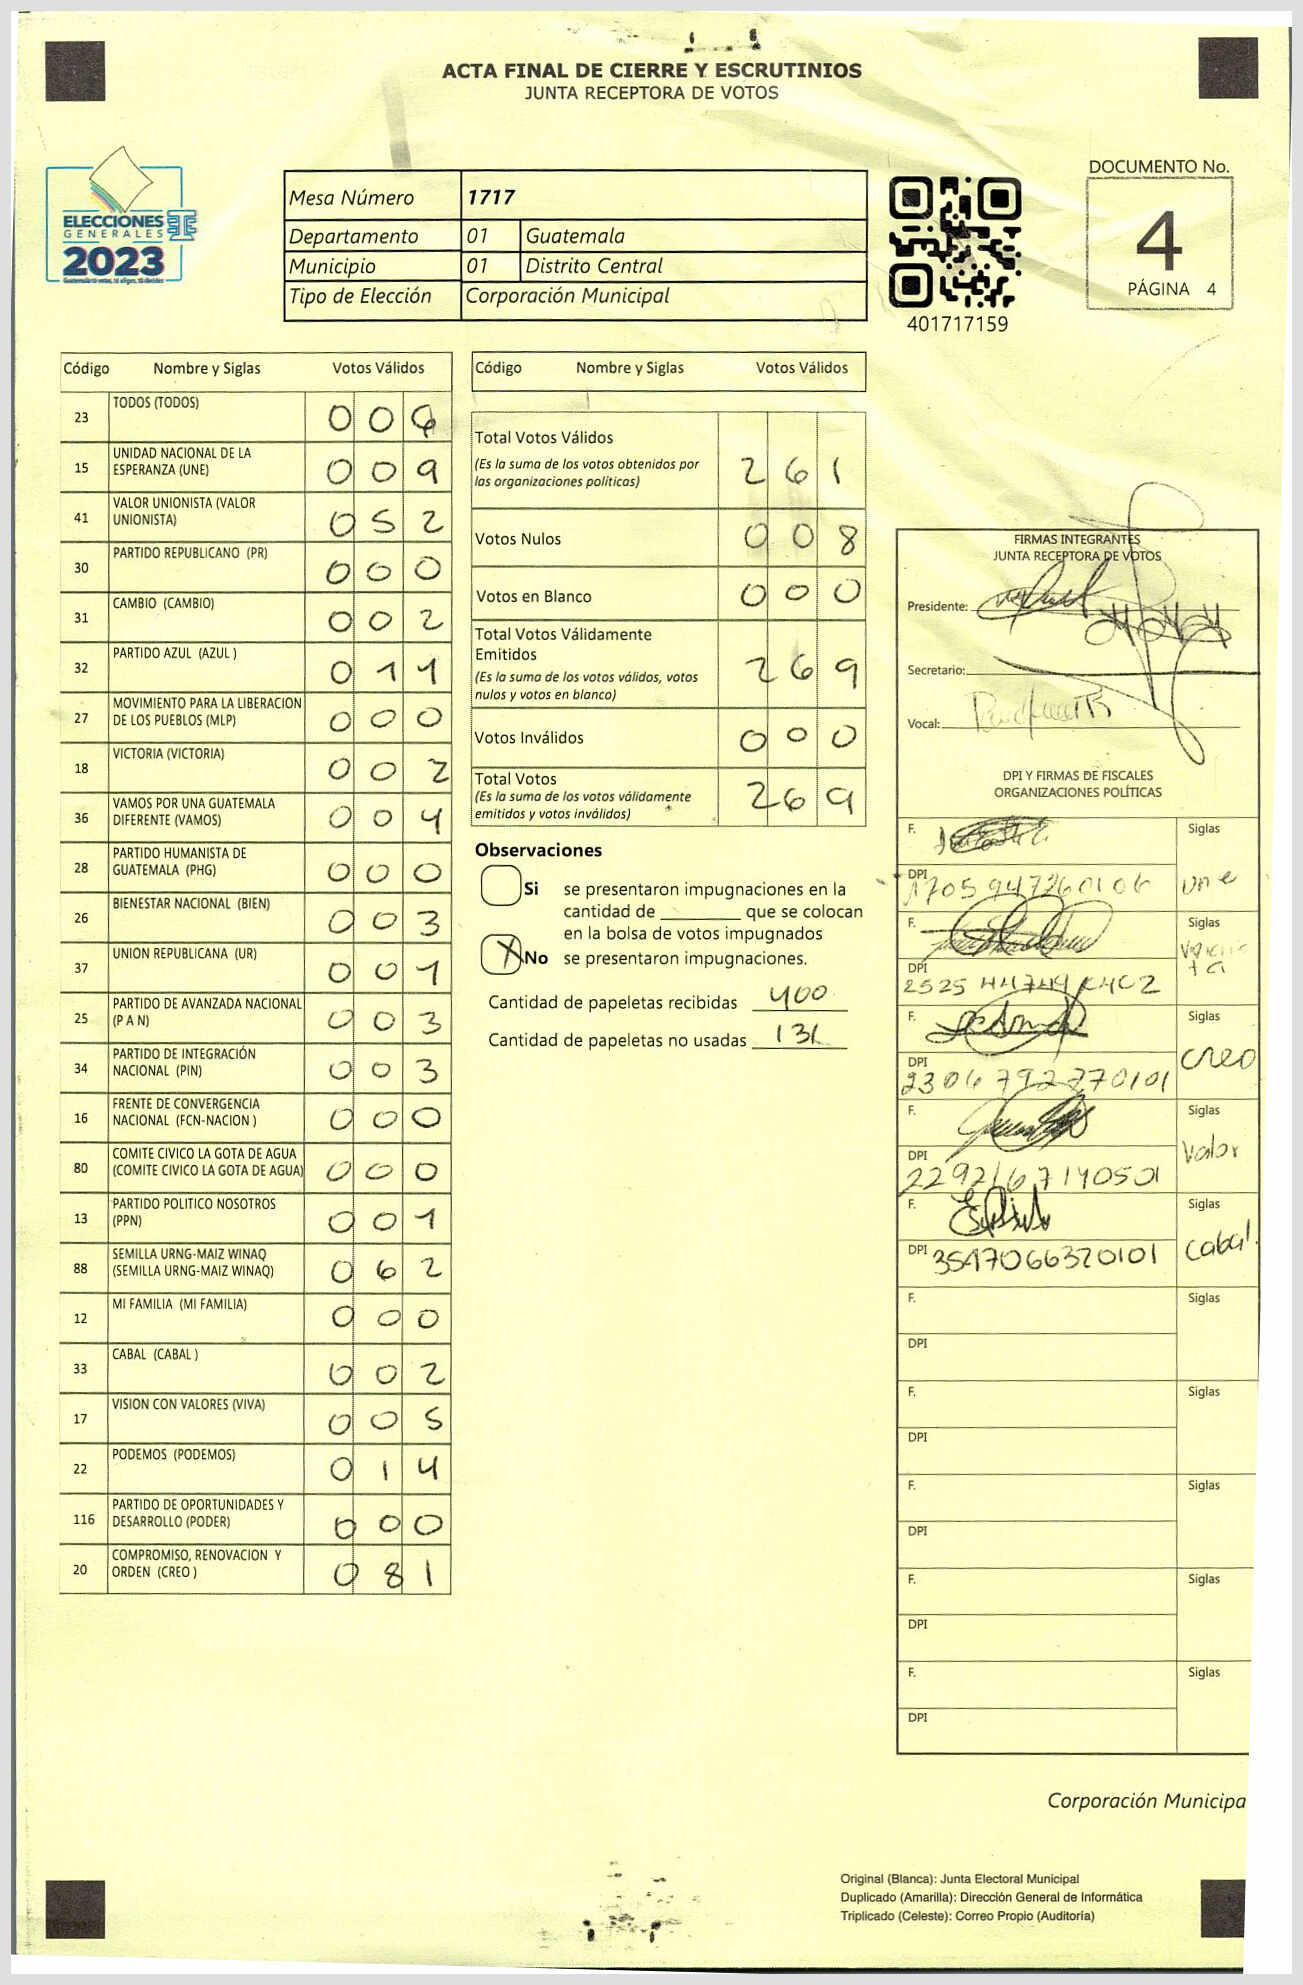 ACTA FINAL DE CIERRE Y ESCRUTINIOS
JUNTA RECEPTORA DE VOTOS
ELECCIONES
GENERALES
2023
Mesa Número 1717
Departamento 01 Guatemala
Municipio 01 Distrito Central
Tipo de Elección Corporación Municipal
401717159
DOCUMENTO No.
4
PÁGINA 4
Código Nombre y Siglas Votos Válidos
23 TODOS (TODOS) 0 0 6
15 UNIDAD NACIONAL DE LA ESPERANZA (UNE) 0 0 9
41 VALOR UNIONISTA (VALOR UNIONISTA) 0 5 2
30 PARTIDO REPUBLICANO (PR) 0 0 0
31 CAMBIO (CAMBIO) 0 0 2
32 PARTIDO AZUL (AZUL ) 0 1 1
27 MOVIMIENTO PARA LA LIBERACION DE LOS PUEBLOS (MLP) 0 0 0
18 VICTORIA (VICTORIA) 0 0 2
36 VAMOS POR UNA GUATEMALA DIFERENTE (VAMOS) 0 0 4
28 PARTIDO HUMANISTA DE GUATEMALA (PHG) 0 0 0
26 BIENESTAR NACIONAL (BIEN) 0 0 3
37 UNION REPUBLICANA (UR) 0 0 1
25 PARTIDO DE AVANZADA NACIONAL (P A N) 0 0 3
34 PARTIDO DE INTEGRACIÓN NACIONAL (PIN) 0 0 3
16 FRENTE DE CONVERGENCIA NACIONAL (FCN-NACION ) 0 0 0
80 COMITE CIVICO LA GOTA DE AGUA (COMITE CIVICO LA GOTA DE AGUA) 0 0 0
13 PARTIDO POLITICO NOSOTROS (PPN) 0 0 1
88 SEMILLA URNG-MAIZ WINAQ (SEMILLA URNG-MAIZ WINAQ) 0 6 2
12 MI FAMILIA (MI FAMILIA) 0 0 0
33 CABAL (CABAL ) 0 0 2
17 VISION CON VALORES (VIVA) 0 0 5
22 PODEMOS (PODEMOS) 0 1 4
116 PARTIDO DE OPORTUNIDADES Y DESARROLLO (PODER) 0 0 0
20 COMPROMISO, RENOVACION Y ORDEN (CREO ) 0 8 1
Código Nombre y Siglas Votos Válidos
Total Votos Válidos
(Es la suma de los votos obtenidos por
las organizaciones políticas) 2 6 1
Votos Nulos 0 0 8
Votos en Blanco 0 0 0
Total Votos Válidamente
Emitidos
(Es la suma de los votos válidos, votos
nulos y votos en blanco) 2 6 9
Votos Inválidos 0 0 0
Total Votos
(Es la suma de los votos válidamente
emitidos y votos inválidos) 2 6 9
Observaciones
Si se presentaron impugnaciones en la
cantidad de ________ que se colocan
en la bolsa de votos impugnados
X No se presentaron impugnaciones.
Cantidad de papeletas recibidas 400
Cantidad de papeletas no usadas 131
FIRMAS INTEGRANTES
JUNTA RECEPTORA DE VOTOS
Presidente:
Secretario:
Vocal:
DPI Y FIRMAS DE FISCALES
ORGANIZACIONES POLÍTICAS
F. Siglas
DPI 1705947260106 une
F. Siglas
DPI
F. Siglas
DPI 2306792770101 creo
F. Siglas
DPI 2292167140501 Valor
F. Siglas
DPI 3547066320101 Cabal.
F. Siglas
DPI
F. Siglas
DPI
F. Siglas
DPI
F. Siglas
DPI
F. Siglas
DPI
Corporación Municipa
Original (Blanca): Junta Electoral Municipal
Duplicado (Amarilla): Dirección General de Informática
Triplicado (Celeste): Correo Propio (Auditoría)